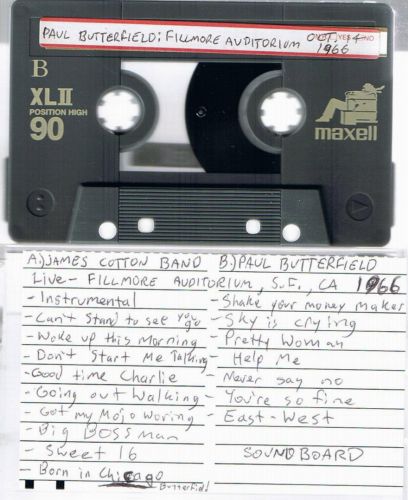 PAUL BUTTERFIELD: FILLMORE AUDITORIUM OCT. 4 1966
YES NO
B
XLII
POSITION HIGH
90
maxell
A.) JAMES COTTON BAND B.) PAUL BUTTERFIELD
Live- FILLMORE AUDITORIUM, S.F., CA 1966
- Instrumental
- Can't Stand to see you go
- Woke up this Morning
- Don't Start Me Talking
- Good time Charlie
- Going out Walking
- Got my Mojo Woring
- Big Boss man
- Sweet 16
- Born in Chicago
Butterfield
- Shake your money maker
- Sky is crying
- Pretty Woman
- Help Me
- Never say no
- You're so fine
- East-West
SOUNDBOARD